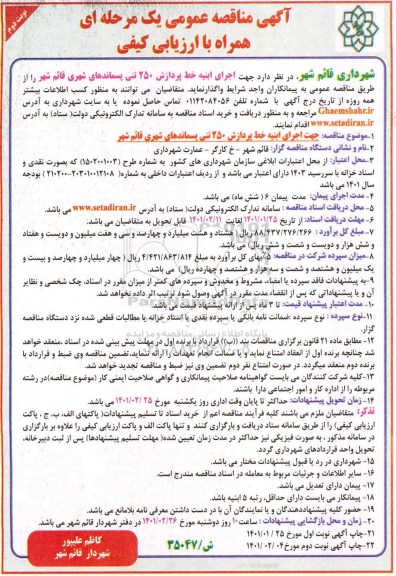 نوبت دوم
آگهی مناقصه عمومی یک مرحله ای
همراه با ارزیابی کیفی
شهرداری قائم شهر، در نظر دارد جهت اجرای ابنیه خط پردازش ۲۵۰ تنی پسماندهای شهری قائم شهر را از
طریق مناقصه عمومی به پیمانکاران واجد شرایط واگذارنماید. متقاضیان می توانند به منظور کسب اطلاعات بیشتر
همه روزه از تاریخ درج آگهی با شماره تلفن ۰۱۱۴۲۰۸۴۰۵۶ تماس حاصل نموده یا به سایت شهرداری به آدرس
Ghaemshahr.ir مراجعه و به منظور دریافت و خرید اسناد مناقصه به سامانه تدارک الکترونیکی دولت( ستاد) به آدرس
www.setadiran.ir اقدام نمایند.
۱-موضوع مناقصه: جهت اجرای ابنیه خط پردازش ۲۵۰ تنی پسماندهای شهری قائم شهر
۲-نام و نشانی دستگاه مناقصه گزار: قائم شهر - خ کارگر - عمارت شهرداری
۳-محل اعتبار: از محل اعتبارات ابلاغی سازمان شهرداری های کشور به شماره طرح (۱۵۰۲۰۰۱۰۰۳) که بصورت نقدی و
اسناد خزانه با سررسید ۱۴۰۳ دارای اعتبار می باشد و از ردیف اعتبارات داخلی به شماره(
سال ۱۴۰۱ می باشد
۴-مدت اجرای پیمان: مدت پیمان ۶ ( شش ماه) می باشد.
۵-محل دریافت اسناد مناقصه : سامانه تدارک الکترونیکی دولت( ستاد) به آدرس www.setadiran.ir می باشد.
۶- مهلت دریافت اسناد: از تاریخ ۱۴۰۱/۰۱/۲۵ لغایت ۱۴۰۱/۰۲/۱۱ قابل تحویل به متقاضیان می باشد.
۷-مبلغ کل برآورد : ۸۸/۴۳۷/۲۷۶/۲۶۶ ریال( هشتاد و هشت میلیارد و چهارصد و سی و هفت میلیون و دویست و هفتاد
و شش هزار و دویست و شصت و شش ریال) می باشد.
۸-میزان سپرده شرکت در مناقصه: ۵٪بهای کل برآورد به مبلغ ۴/۴۲۱/۸۶۳/۸۱۴ ریال ( چهار میلیارد و چهارصد و بیست و
یک میلیون و هشتصد و شصت و سه هزار و هشتصد و چهارده ریال) می باشد.
۹-به پیشنهادات فاقد سپرده یا امضاء، مشروط و مخدوش و سپرده های کمتر از میزان مقرر در اسناد، چک شخصی و نظایر
آن و یا پیشنهاداتی که پس از انقضاء مدت مقرر در آگهی وصول شود ترتیب اثر داده نخواهد شد.
۱۰- مدت اعتبار پیشنهاد قیمت: تا ۳ ماه پس از ارائه پیشنهاد قیمت می باشد.
۱۱-نوع سپرده : نوع سپرده :ضمانت نامه بانکی یا سپرده نقدی یا اسناد خزانه یا مطالبات قطعی شده نزد دستگاه مناقصه
گزار.
۱۲- مطابق ماده ۲۱ قانون برگزاری مناقصات بند ((ب)) قرارداد با برنده اول در مهلت پیش بینی شده در اسناد ،منعقد خواهد
شد چنانچه برنده اول از انعقاد امتناع نماید و یا ضمانت انجام تعهدات را ارائه نماید، تضمین مناقصه وی ضبط و قرارداد با
برنده دوم منعقد میگردد. در صورت امتناع نفر دوم تضمین وی نیز ضبط و مناقصه تجدید خواهد شد.
۱۳-کلیه شرکت کنندگان می بایست گواهینامه صلاحیت پیمانکاری و گواهی صلاحیت ایمنی کار (موضوع مناقصه)در رشته
مربوطه را از اداره کار و امور اجتماعی دارا باشند.
۱۴- زمان تحویل پیشنهادات: حداکثر تا پایان وقت اداری روز یکشنبه مورخ ۱۴۰۱/۰۲/۲۵ می باشد.
تذکر: متقاضیان ملزم می باشند کلیه فرآیند مناقصه اعم از خرید اسناد تا تسلیم پیشنهادات( پاکتهای الف، ب، ج ، پاکت
ارزیابی کیفی) را از طریق سامانه ستاد دریافت و بارگزاری کنند و تنها پاکت الف و پاکت ارزیابی کیفی را علاوه بر بارگزاری
در سامانه مذکور ، به صورت فیزیکی نیز حداکثر در مدت زمان تعیین شده( مهلت تسلیم پیشنهادها) پس از ثبت دبیرخانه،
تحویل واحد قراردادهای شهرداری گردد.
۱۵- شهرداری در رد یا قبول پیشنهادات مختار می باشد.
۱۶- سایر اطلاعات و جزئیات مربوط به معامله در اسناد مناقصه مندرج است.
۱۷- پیمان دارای تعدیل می باشد.
۱۸- پیمانکار می بایست دارای حداقل، رتبه ۵ ابنیه باشد.
۱۹- حضور کلیه پیشنهاددهندگان و یا نمایندگان آن با در دست داشتن معرفی نامه بلامانع می باشد.
۲۰-زمان و محل بازگشایی پیشنهادات : ساعت ۱۰ روز دوشنبه مورخ ۱۴۰۱/۰۲/۲۶ در دفتر شهردار قائم شهر می باشد.
۲۱-چاپ آگهی نوبت اول مورخ ۱۴۰۱/۰۱/۲۵
۲۲-چاپ آگهی نوبت دوم مورخ ۱۴۰۱/۰۲/۰۴
ش/۳۵۰۴۷
کاظم علیپور
شهردار قائم شهر